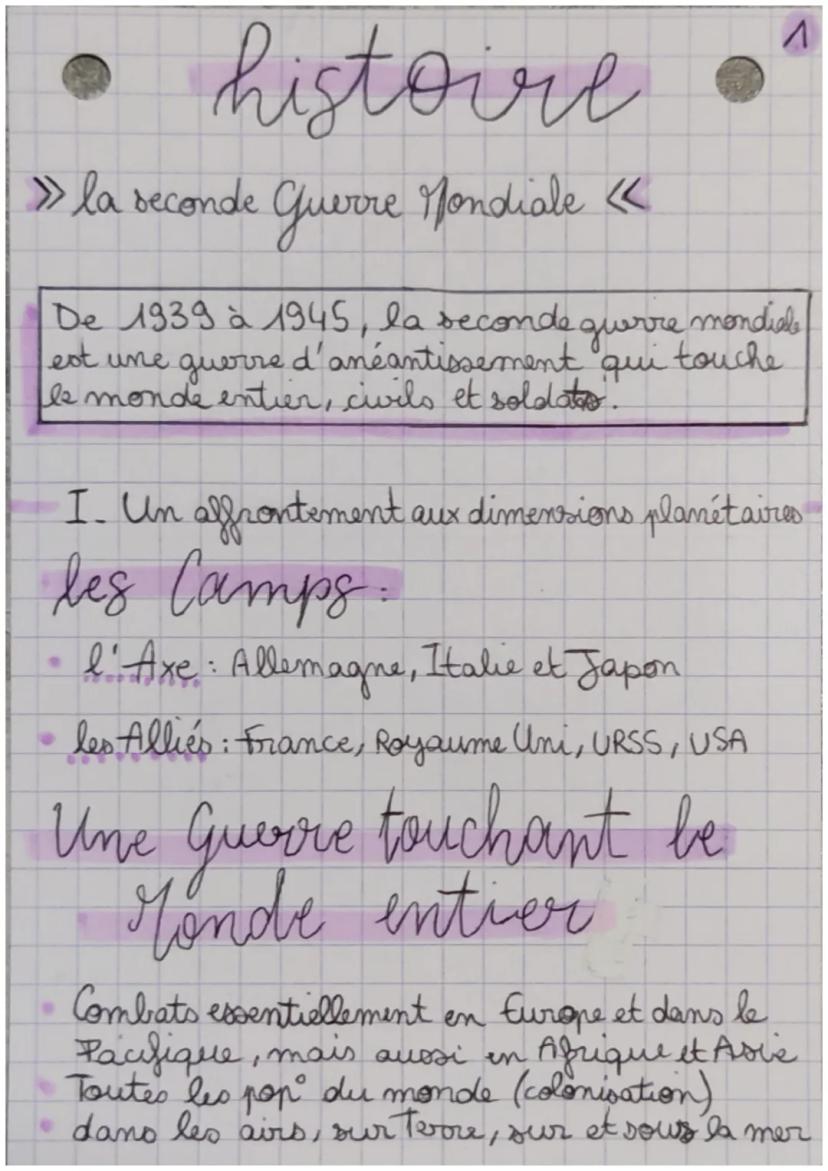 1
histoire
>> la seconde Guerre Mondiale <<
De 1939 à 1945, la seconde guerre mondiale
est une guerre d'anéantissement qui touche
le monde entier, civils et soldats.
I. Un affrontement aux dimensions planétaires
les Camps :
• l'Axe : Allemagne, Italie et Japon
• les Alliés : France, Royaume Uni, URSS, USA
Une Guerre touchant le
Monde entier
• Combats essentiellement en Europe et dans le
Pacifique, mais aussi en Afrique et Asie
• Toutes les pop° du monde (colonisation)
• dans les airs, sur Terre, sur et sous la mer